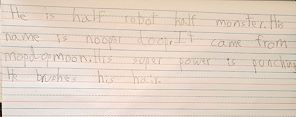 He is half robot half monster. His
name is noopr Loopr. It came from
mopdopmoon. His super power is punching
He brushes his hair.